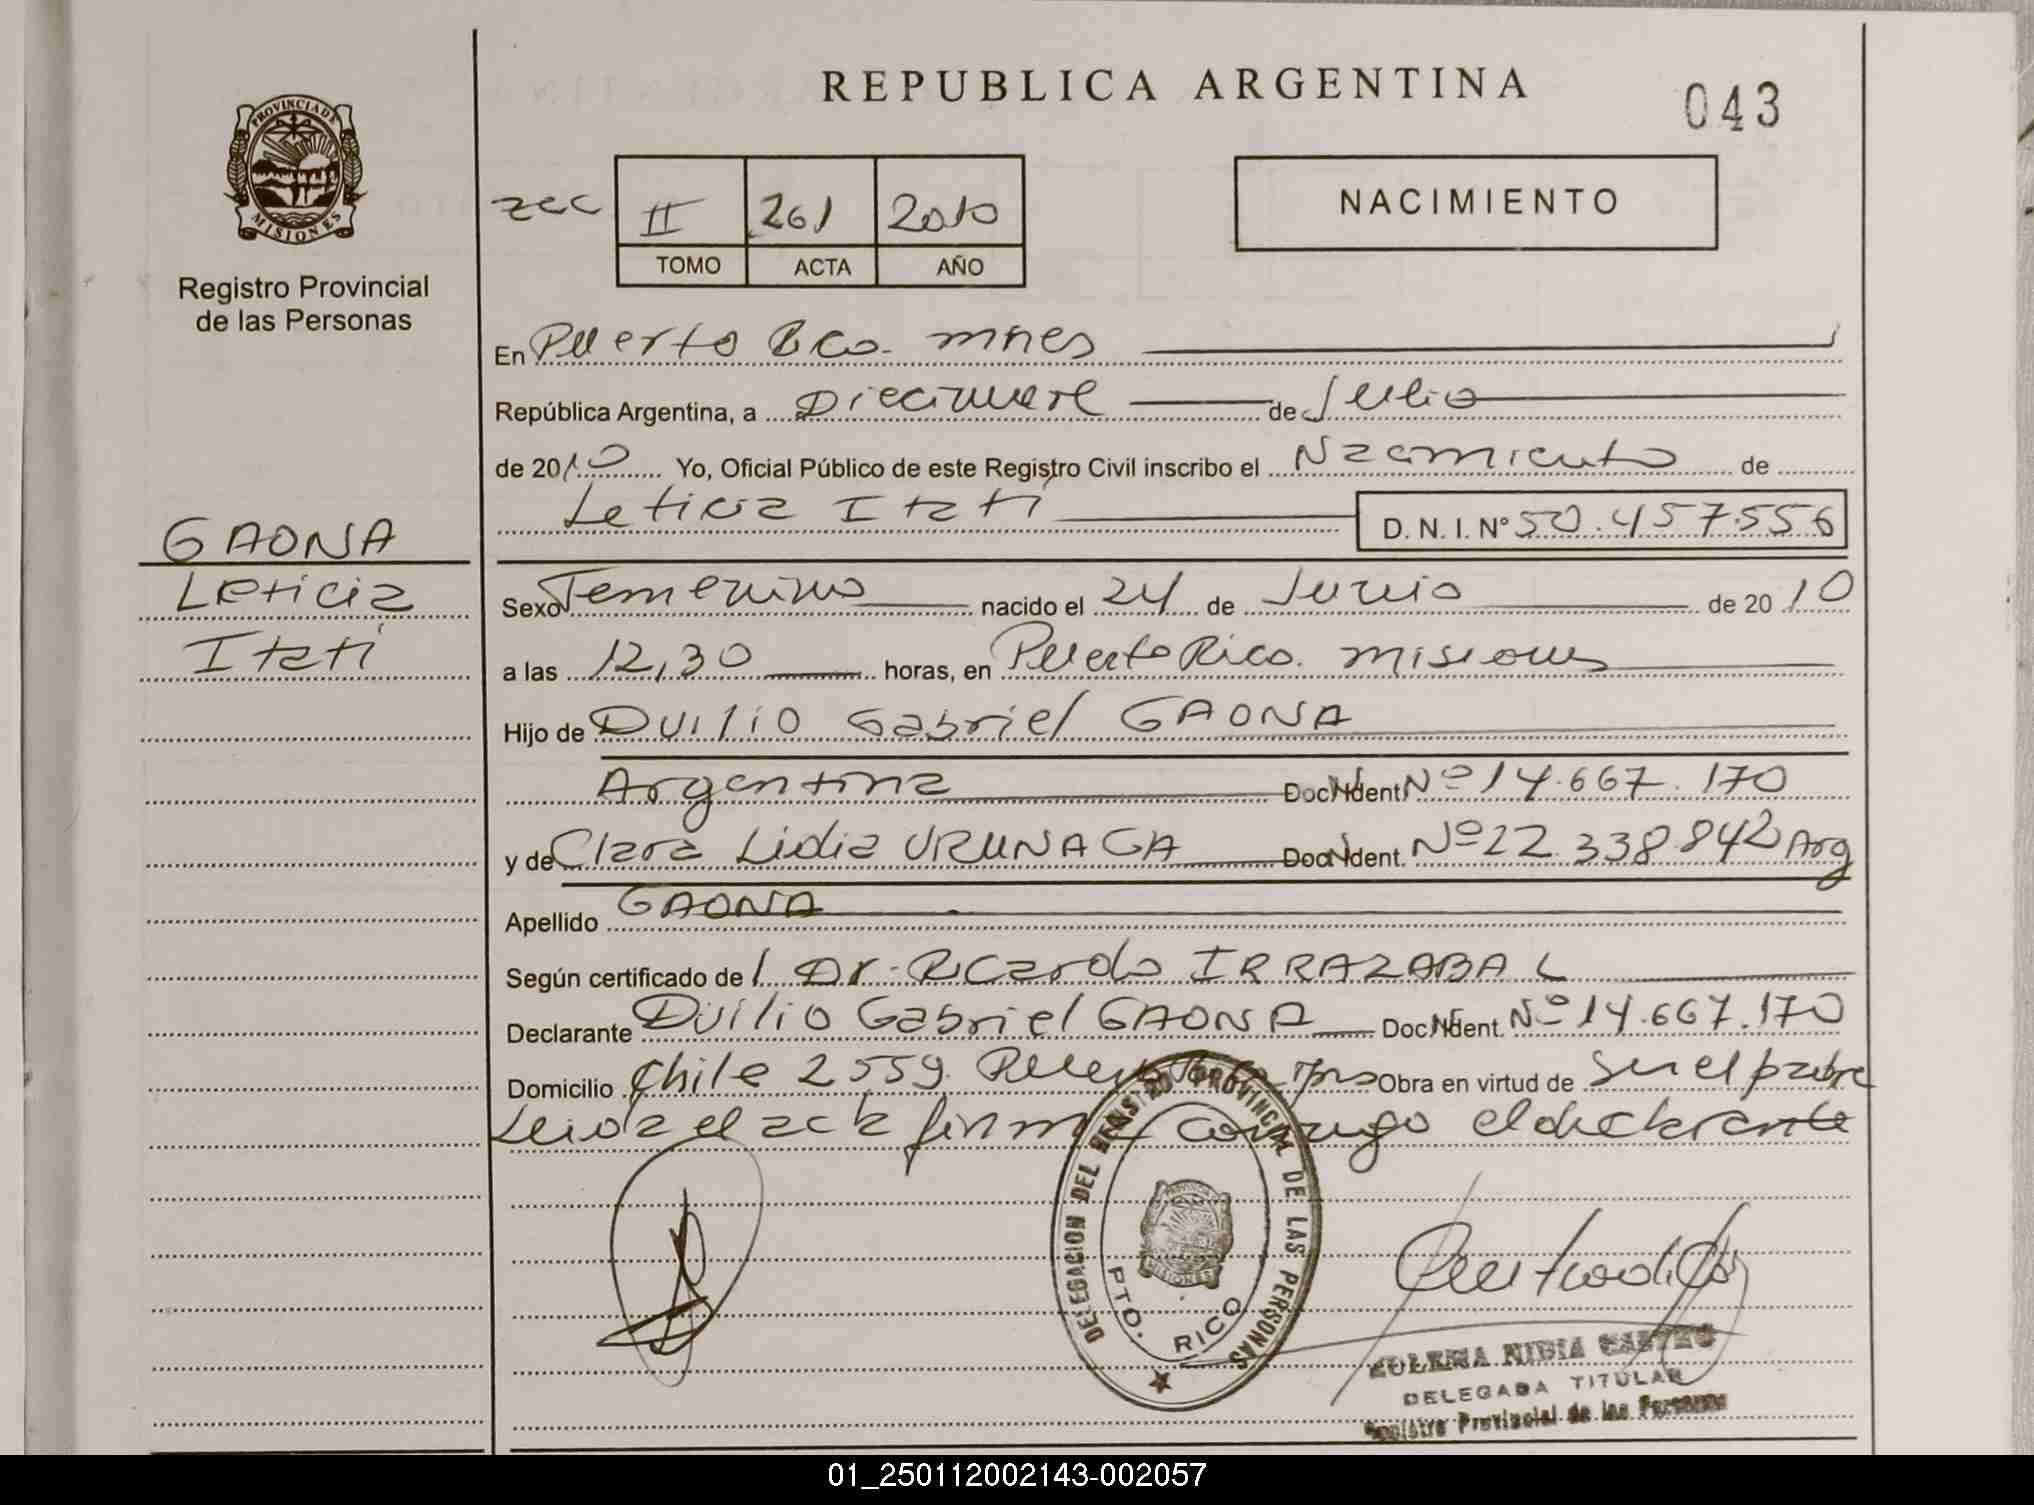 REPUBLICA ARGENTINA
043
PROVINCIA DE
MISIONES
Registro Provincial
de las Personas
II 261 2010
TOMO ACTA AÑO
NACIMIENTO
En Puerto Rco. mnes
República Argentina, a Diecinueve de Julio
de 2010 Yo, Oficial Público de este Registro Civil inscribo el Nacimiento de
Leticia Itatí D. N. I. Nº 50.457.556
GAONA
Leticia
Itatí
Sexo Femenino nacido el 24 de Junio de 2010
a las 12,30 horas, en Puerto Rico. misiones
Hijo de Duilio Gabriel GAONA
Argentina Doc. Ident. Nº 14.667.170
y de Clara Lidia URUNAGA Doc. Ident. Nº 22.338.842 Arg
Apellido GAONA
Según certificado de Dr. Ricardo IRRAZABAL
Declarante Duilio Gabriel GAONA Doc. Ident. Nº 14.667.170
Domicilio Chile 2559. Puerto Obra en virtud de ser el padre
Leida el acta firma conmigo el declarante
DELEGACION DEL REGISTRO PROVINCIAL DE LAS PERSONAS
PROVINCIA
MISIONES
PTO. RICO
ZULEMA NIDIA CASTRO
DELEGADA TITULAR
Registro Provincial de las Personas
01_250112002143-002057